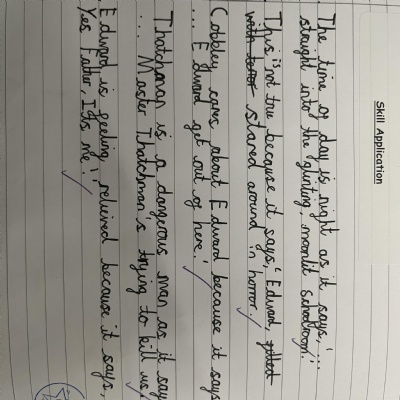 Skill Application
The time of day is night as it says, '...
straight into the glinting, moonlit schoolroom.'
This is not true because it says, 'Edward, gilled
with terror stared around in horror.'
Cobbley cares about Edward because it says
'... Edward get out of here.'
Thatchman is a dangerous man as it say
'... Master Thatchman's trying to kill us,'
Edward is feeling relieved because it says,
'Yes Father, It's me!'